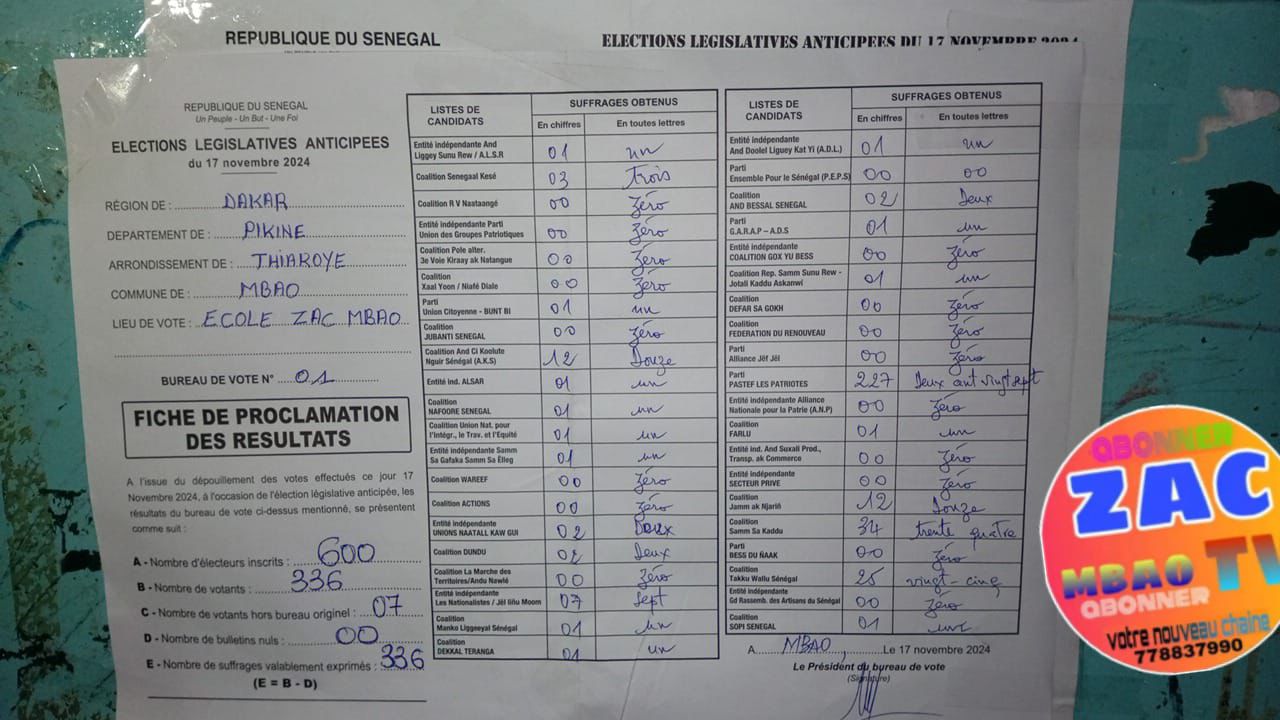 REPUBLIQUE DU SENEGAL
ELECTIONS LEGISLATIVES ANTICIPEES DU 17 NOVEMBRE 2024
REPUBLIQUE DU SENEGAL
Un Peuple - Un But - Une Foi
ELECTIONS LEGISLATIVES ANTICIPEES
du 17 novembre 2024
RÉGION DE : DAKAR
DEPARTEMENT DE : PIKINE
ARRONDISSEMENT DE : THIAROYE
COMMUNE DE : MBAO
LIEU DE VOTE : ECOLE ZAC MBAO
BUREAU DE VOTE N° 01
FICHE DE PROCLAMATION
DES RESULTATS
A l'issue du dépouillement des votes effectués ce jour 17
Novembre 2024, à l'occasion de l'élection législative anticipée, les
résultats du bureau de vote ci-dessus mentionné, se présentent
comme suit :
A - Nombre d'électeurs inscrits : 600
B - Nombre de votants : 336
C - Nombre de votants hors bureau originel : 07
D - Nombre de bulletins nuls : 00
E - Nombre de suffrages valablement exprimés : 336
(E = B - D)
LISTES DE
CANDIDATS
SUFFRAGES OBTENUS
En chiffres
En toutes lettres
Entité indépendante And
Liggey Sunu Rew / A.L.S.R 01 un
Coalition Senegaal Kesé 03 trois
Coalition R V Naataangé 00 Zéro
Entité indépendante Parti
Union des Groupes Patriotiques 00 Zéro
Coalition Pole alter.
3e Voie Kiraay ak Natangue 00 Zéro
Coalition
Xaal Yoon / Niafé Diale 00 Zéro
Parti
Union Citoyenne - BUNT BI 01 un
Coalition
JUBANTI SENEGAL 00 Zéro
Coalition And Ci Koolute
Nguir Sénégal (A.K.S) 12 Douze
Entité ind. ALSAR 01 un
Coalition
NAFOORE SENEGAL 01 un
Coalition Union Nat. pour
l'Intégr., le Trav. et l'Equité 01 un
Entité indépendante Samm
Sa Gafaka Samm Sa Ëlleg 01 un
Coalition WAREEF 00 Zéro
Coalition ACTIONS 00 Zéro
Entité indépendante
UNIONS NAATALL KAW GUI 02 Deux
Coalition DUNDU 02 Deux
Coalition La Marche des
Territoires/Andu Nawlé 00 Zéro
Entité indépendante
Les Nationalistes / Jël liñu Moom 07 Sept
Coalition
Manko Liggeeyal Sénégal 01 un
Coalition
DEKKAL TERANGA 01 un
LISTES DE
CANDIDATS
SUFFRAGES OBTENUS
En chiffres
En toutes lettres
Entité indépendante
And Doolel Liguey Kat Yi (A.D.L.) 01 un
Parti
Ensemble Pour le Sénégal (P.E.P.S) 00 00
Coalition
AND BESSAL SENEGAL 02 Deux
Parti
G.A.R.A.P – A.D.S 01 un
Entité indépendante
COALITION GOX YU BESS 00 Zéro
Coalition Rep. Samm Sunu Rew -
Jotali Kaddu Askanwi 01 un
Coalition
DEFAR SA GOKH 00 Zéro
Coalition
FEDERATION DU RENOUVEAU 00 Zéro
Parti
Alliance Jëf Jël 00 Zéro
Parti
PASTEF LES PATRIOTES 227 Deux cent vingt sept
Entité indépendante Alliance
Nationale pour la Patrie (A.N.P) 00 Zéro
Coalition
FARLU 01 un
Entité ind. And Suxali Prod.,
Transp. ak Commerce 00 Zéro
Entité indépendante
SECTEUR PRIVE 00 Zéro
Coalition
Jamm ak Njariñ 12 Douze
Coalition
Samm Sa Kaddu 34 trente quatre
Parti
BESS DU ÑAAK 00 Zéro
Coalition
Takku Wallu Sénégal 25 vingt-cinq
Entité indépendante
Gd Rassemb. des Artisans du Sénégal 00 Zéro
Coalition
SOPI SENEGAL 01 un
A MBAO, Le 17 novembre 2024
Le Président du bureau de vote
(Signature)
QBONNER
ZAC
MBAO TV
QBONNER
votre nouveau chaine
778837990